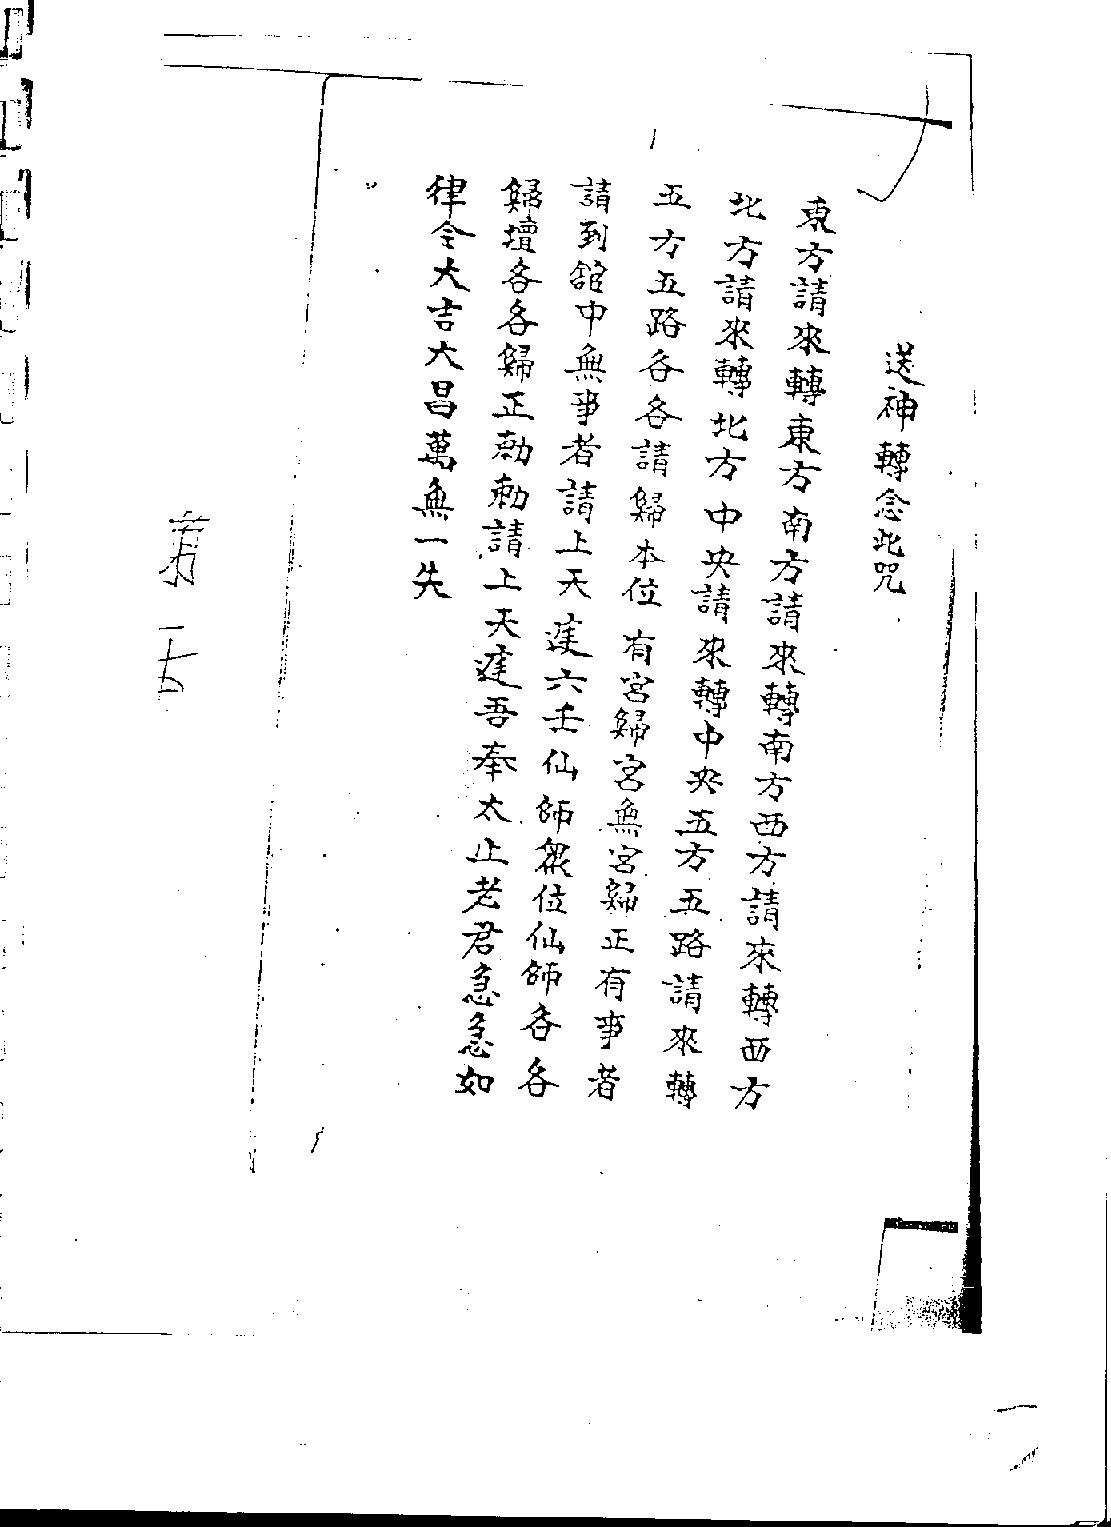 送神轉念此咒
東方請來轉東方南方請來轉南方西方請來轉西方
北方請來轉北方中央請來轉中央五方五路請來轉
五方五路各各請歸本位有宮歸宮無宮歸正有事者
請到舘中無事者請上天遑六壬仙師衆位仙師各各
歸壇各各歸正勅勅請上天遑吾奉太上老君急急如
律令大吉大昌萬無一失